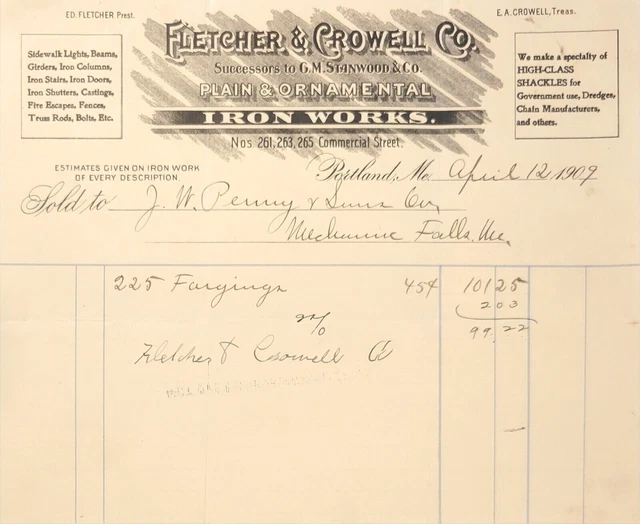 ED. FLETCHER Prest.
E. A. CROWELL, Treas.
FLETCHER & CROWELL CO.
Successors to G. M. STANWOOD & CO.
PLAIN & ORNAMENTAL
IRON WORKS.
Nos 261, 263, 265 Commercial Street.
Sidewalk Lights, Beams,
Girders, Iron Columns,
Iron Stairs, Iron Doors,
Iron Shutters, Castings,
Fire Escapes, Fences,
Truss Rods, Bolts, Etc.
We make a specialty of
HIGH-CLASS
SHACKLES for
Government use, Dredges,
Chain Manufacturers,
and others.
ESTIMATES GIVEN ON IRON WORK
OF EVERY DESCRIPTION.
Portland, Me. April 12 1909
Sold to J. W. Penny & Sons Co,
Mechanic Falls, Me.
225 Forgings 45¢ 101 25
2% 2 03
99 22
Fletcher & Crowell Co